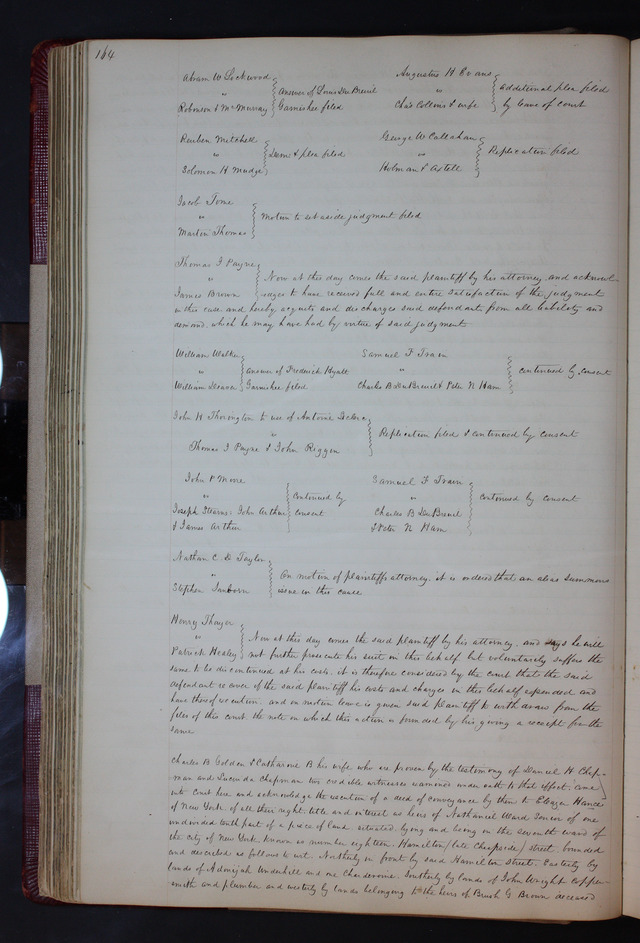 164
Abram W Lockwood
"
Robinson & McMurray
Answer of Louis Du Breuil
Garnishee filed
Augustus H Evans
"
Chas Collins & wife
additional plea filed
by leave of court
Reuben Mitchell
"
Solomon H Mudge
Dem & plea filed
George W Callahan
"
Holman & Axtell
Replication filed
Jacob Tome
"
Martin Thomas
Motion to set aside judgment filed
Thomas J Payne
"
James Brown
Now at this day comes the said plaintiff by his attorney and acknowl-
edges to have received full and entire satisfaction of the judgment
in this case and hereby acquits and discharges said defendant from all liability and
demand which he may have had by virtue of said judgment
William Walker
"
William
answer of Frederick Hyatt
Garnishee filed
Samuel F Train
"
Charles B DuBreuil & Peter N Ham
continued by consent
John H Thorington to use of Antoine
"
Thomas J Payne & John Riggin
Replication filed & continued by consent
John P Moore
"
Joseph Stearns, John Arthur
& James Arthur
Continued by
consent
Samuel F Train
"
Charles B DuBreuil
& Peter N Ham
Continued by consent
Nathan C D Taylor
"
Stephen Sanborn
On motion of plaintiffs attorney. it is ordered that an alias summons
issue in this cause
Henry Thayer
"
Patrick Healey
Now at this day comes the said plaintiff by his attorney. and says he will
not further prosecute his suit in this behalf but voluntarily suffers the
same to be discontinued at his costs. it is therefore considered by the court that the said
defendant recover of the said plaintiff his costs and charges in this behalf expended and
have thereof execution. and on motion leave is given said plaintiff to withdraw from the
files of this court the note on which this action is founded by his giving a receipt for the
same
Charles B Golden & Catharine B his wife who are proven by the testimony of Daniel H Chap-
man and Lucinda Chapman two credible witnesses examined under oath to that effect, came
into Court here and acknowledge the execution of a deed of conveyance by them to Eleazer Hance
of New York of all their right, title and interest as heirs of Nathaniel Ward Senior of one
undivided tenth part of a piece of land situated lying and being in the seventh ward of
the city of New York known as number eighteen. Hamilton (late Cheapside) street. bounded
and described as follows to wit. Northerly in front by said Hamilton Street. Easterly by
lands of Adonijah Underhill and one Charderoine. Southerly by lands of John Wright copper-
smith and plumber and westerly by lands belonging to the heirs of Brush G Brown deceased